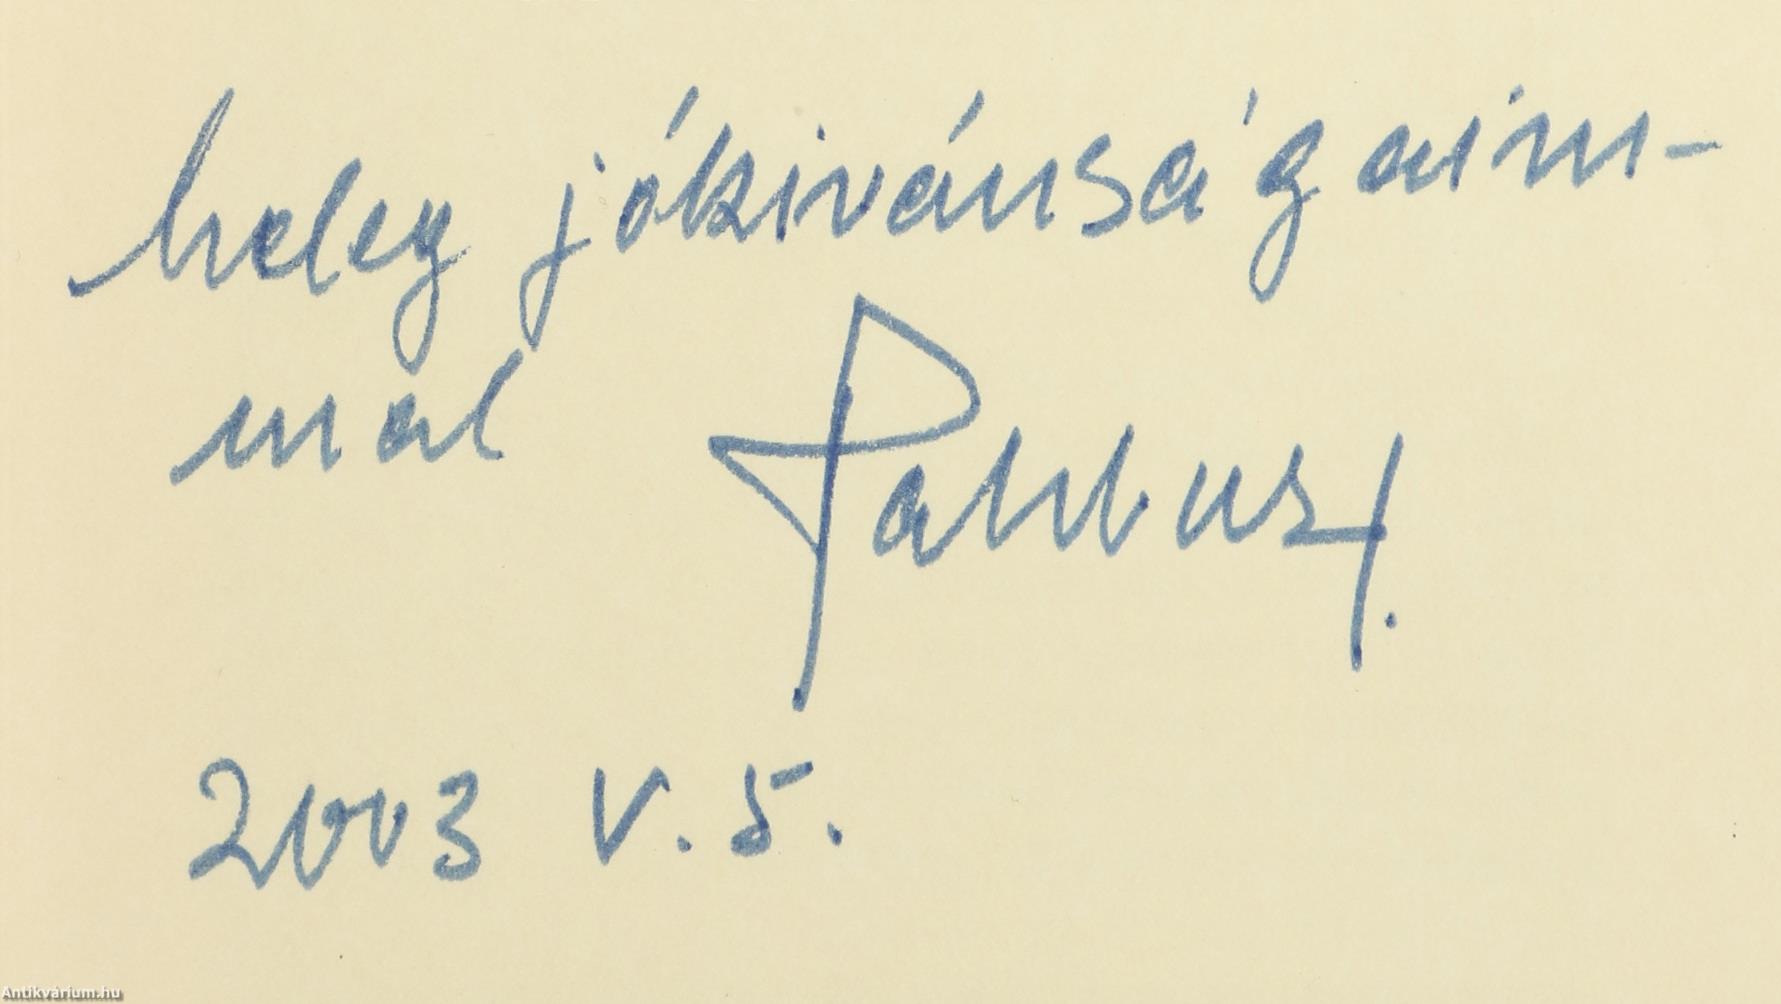 meleg jókivánságaim-
mal
2003 V. 5.
Antikvárium.hu